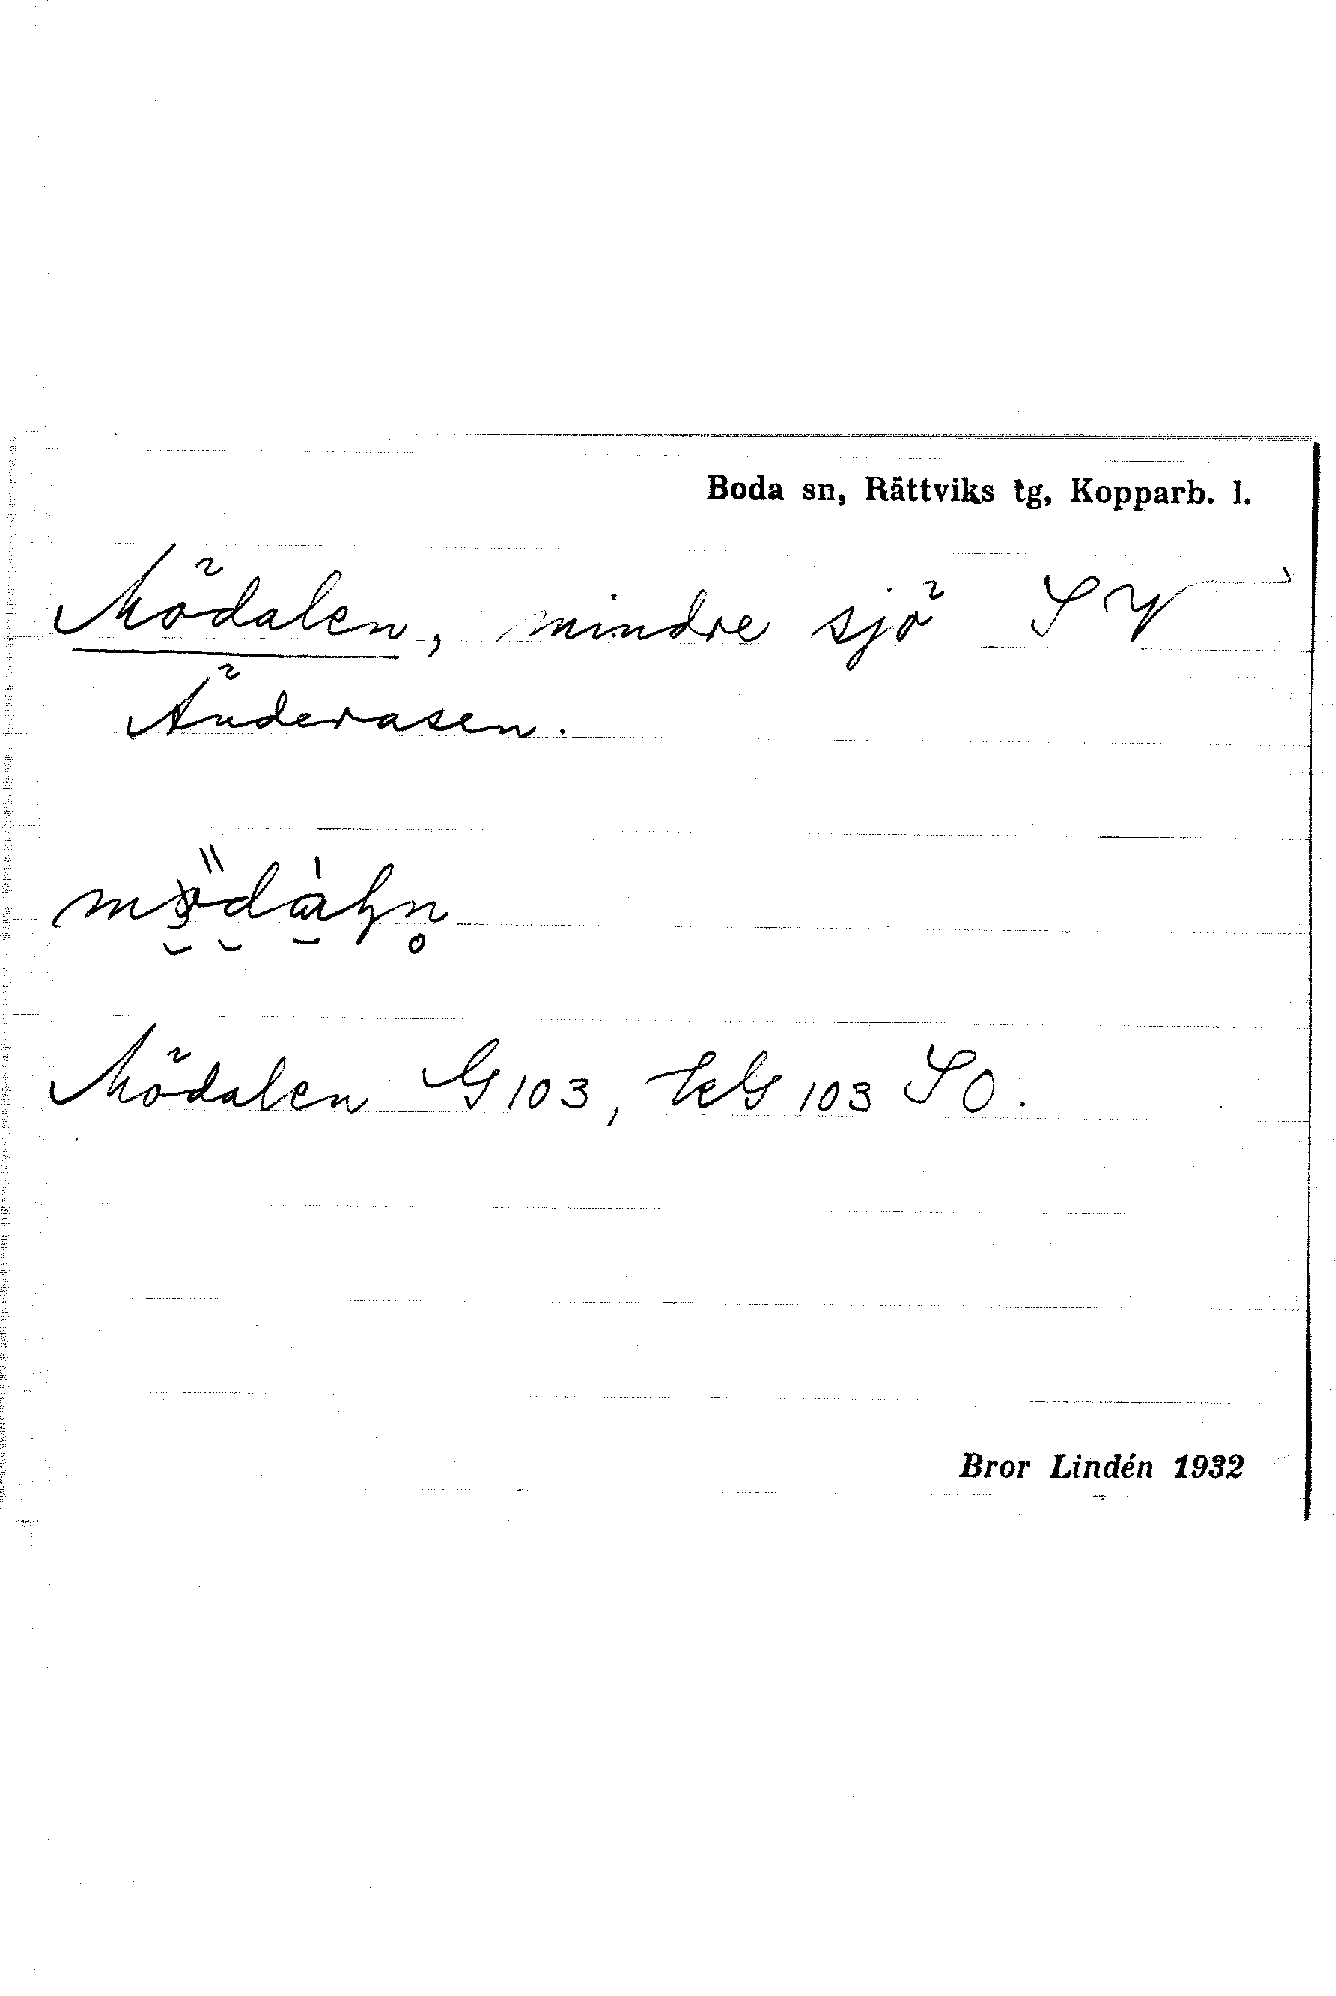 Boda sn, Rättviks tg, Kopparb. l.
Mödalen, mindre sjö SV
Änderasen.
Mödalen G 103, kG 103 SO.
Bror Lindén 1932